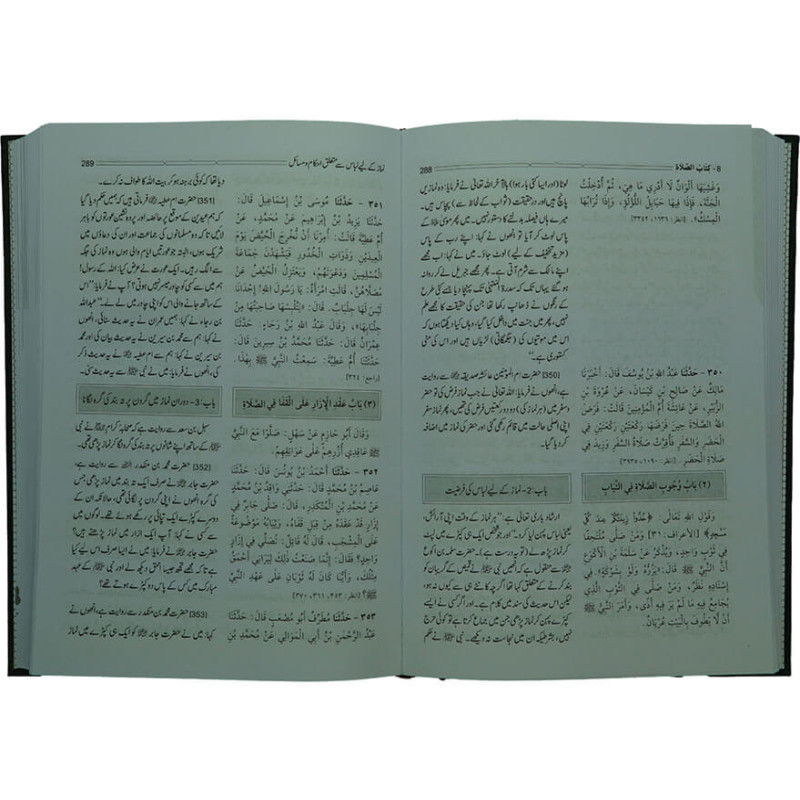 8 - كِتَابُ الصَّلَاة
288
وَغَشِيَهَا أَلْوَانٌ لَا أَدْرِي مَا هِيَ، ثُمَّ أُدْخِلْتُ
الْجَنَّةَ، فَإِذَا فِيهَا حَبَايِلُ اللُّؤْلُؤِ، وَإِذَا تُرَابُهَا
الْمِسْكُ». [انظر: ١٦٣٦، ٣٣٤٢]
٣٥٠ - حَدَّثَنَا عَبْدُ اللهِ بْنُ يُوسُفَ قَالَ: أَخْبَرَنَا
مَالِكٌ عَنْ صَالِحِ بْنِ كَيْسَانَ، عَنْ عُرْوَةَ بْنِ
الزُّبَيْرِ، عَنْ عَائِشَةَ أُمِّ الْمُؤْمِنِينَ قَالَتْ: فَرَضَ
اللهُ الصَّلَاةَ حِينَ فَرَضَهَا، رَكْعَتَيْنِ رَكْعَتَيْنِ فِي
الْحَضَرِ وَالسَّفَرِ فَأُقِرَّتْ صَلَاةُ السَّفَرِ وَزِيدَ فِي
صَلَاةِ الْحَضَرِ. [انظر: ١٠٩٠، ٣٩٣٥]
(٢) بَابُ وُجُوبِ الصَّلَاةِ فِي الثِّيَابِ
وَقَوْلِ اللهِ تَعَالَى: ﴿خُذُوا زِينَتَكُمْ عِنْدَ كُلِّ
مَسْجِدٍ﴾ [الأعراف: ٣١] وَمَنْ صَلَّى مُلْتَحِفًا
فِي ثَوْبٍ وَاحِدٍ، وَيُذْكَرُ عَنْ سَلَمَةَ بْنِ الْأَكْوَعِ
أَنَّ النَّبِيَّ ﷺ قَالَ: «يَزُرُّهُ وَلَوْ بِشَوْكَةٍ». فِي
إِسْنَادِهِ نَظَرٌ، وَمَنْ صَلَّى فِي الثَّوْبِ الَّذِي
يُجَامِعُ فِيهِ مَا لَمْ يَرَ فِيهِ أَذًى، وَأَمَرَ النَّبِيُّ ﷺ
أَنْ لَا يَطُوفَ بِالْبَيْتِ عُرْيَانٌ.
لوٹا (اور ایسا کئی بار ہوا) بالآخر اللہ تعالیٰ نے فرمایا: وہ نمازیں
پانچ ہیں اور درحقیقت (ثواب کے لحاظ سے) پچاس ہیں۔
میرے ہاں فیصلہ بدلنے کا دستور نہیں۔ پھر موسیٰ کے
پاس لوٹ کر آیا تو انھوں نے کہا: اپنے رب کے پاس
(مزید تخفیف کے لیے) لوٹ جاؤ۔ میں نے کہا: اب مجھے
اپنے مالک سے شرم آتی ہے۔ پھر مجھے جبریل لے کر روانہ
ہو گئے یہاں تک کہ سدرۃ المنتہیٰ تک پہنچا دیا جسے کئی طرح
کے رنگوں نے ڈھانپ رکھا تھا جن کی حقیقت کا مجھے علم
نہیں، پھر میں جنت میں داخل کیا گیا، وہاں کیا دیکھتا ہوں کہ
اس میں موتیوں کی (جگمگاتی) لڑیاں ہیں اور اس کی مٹی
کستوری ہے۔"
[350] حضرت ام المومنین عائشہ صدیقہ سے روایت
ہے، انھوں نے فرمایا: اللہ تعالیٰ نے جب نماز فرض کی تو حضر
و سفر میں (ہر نماز کی) دو دو رکعتیں فرض کی تھیں، پھر نماز سفر
اپنی اصلی حالت میں قائم رکھی گئی اور حضر کی نماز میں اضافہ
کر دیا گیا۔
باب: 2 - نماز کے لیے لباس کی فرضیت
ارشاد باری تعالیٰ ہے: "ہر نماز کے وقت اپنی آرائش،
یعنی لباس پہن لیا کرو۔" اور جو شخص ایک ہی کپڑے میں لپٹ
کر نماز پڑھ لے (تو یہ درست ہے)۔ حضرت سلمہ بن اکوع
سے منقول ہے کہ نبی ﷺ نے اپنے کپڑے کو
بند کرنے کے متعلق کہا تھا: اگرچہ کانٹے ہی سے ہو، یہ کافی ہے
لیکن اس حدیث کی سند میں کلام ہے۔ اور اگر کسی نے ایسے
کپڑے پہن کر نماز پڑھی جن میں جماع کرتا ہے تو کوئی حرج
نہیں، بشرطیکہ ان میں نجاست نہ دیکھے۔ نبی ﷺ نے حکم
نماز کے لیے لباس سے متعلق احکام و مسائل
289
٣٥١ - حَدَّثَنَا مُوسَى بْنُ إِسْمَاعِيلَ قَالَ:
حَدَّثَنَا يَزِيدُ بْنُ إِبْرَاهِيمَ عَنْ مُحَمَّدٍ، عَنْ
أُمِّ عَطِيَّةَ قَالَتْ: أُمِرْنَا أَنْ نُخْرِجَ الْحُيَّضَ يَوْمَ
الْعِيدَيْنِ وَذَوَاتِ الْخُدُورِ فَيَشْهَدْنَ جَمَاعَةَ
الْمُسْلِمِينَ وَدَعْوَتَهُمْ، وَيَعْتَزِلُ الْحُيَّضُ عَنْ
مُصَلَّاهُنَّ، قَالَتِ امْرَأَةٌ: يَا رَسُولَ اللهِ! إِحْدَانَا
لَيْسَ لَهَا جِلْبَابٌ. قَالَ: «لِتُلْبِسْهَا صَاحِبَتُهَا مِنْ
جِلْبَابِهَا». وَقَالَ عَبْدُ اللهِ بْنُ رَجَاءٍ: حَدَّثَنَا
عِمْرَانُ قَالَ: حَدَّثَنَا مُحَمَّدُ بْنُ سِيرِينَ قَالَ:
حَدَّثَتْنَا أُمُّ عَطِيَّةَ: سَمِعْتُ النَّبِيَّ ﷺ بِهَذَا.
[راجع: ٣٢٤]
(٣) بَابُ عَقْدِ الْإِزَارِ عَلَى الْقَفَا فِي الصَّلَاةِ
وَقَالَ أَبُو حَازِمٍ عَنْ سَهْلٍ: صَلَّوْا مَعَ النَّبِيِّ
ﷺ عَاقِدِي أُزُرِهِمْ عَلَى عَوَاتِقِهِمْ.
٣٥٢ - حَدَّثَنَا أَحْمَدُ بْنُ يُونُسَ قَالَ: حَدَّثَنَا
عَاصِمُ بْنُ مُحَمَّدٍ قَالَ: حَدَّثَنِي وَاقِدُ بْنُ مُحَمَّدٍ
عَنْ مُحَمَّدِ بْنِ الْمُنْكَدِرِ، قَالَ: صَلَّى جَابِرٌ فِي
إِزَارٍ قَدْ عَقَدَهُ مِنْ قِبَلِ قَفَاهُ، وَثِيَابُهُ مَوْضُوعَةٌ
عَلَى الْمِشْجَبِ، قَالَ لَهُ قَائِلٌ: تُصَلِّي فِي إِزَارٍ
وَاحِدٍ؟ فَقَالَ: إِنَّمَا صَنَعْتُ ذَلِكَ لِيَرَانِي أَحْمَقُ
مِثْلُكَ، وَأَيُّنَا كَانَ لَهُ ثَوْبَانِ عَلَى عَهْدِ النَّبِيِّ
ﷺ؟ [انظر: ٣٥٣، ٣٦١، ٣٧٠]
٣٥٣ - حَدَّثَنَا مُطَرِّفٌ أَبُو مُصْعَبٍ قَالَ: حَدَّثَنَا
عَبْدُ الرَّحْمٰنِ بْنُ أَبِي الْمَوَالِي عَنْ مُحَمَّدِ بْنِ
دیا تھا کہ کوئی برہنہ ہو کر بیت اللہ کا طواف نہ کرے۔
[351] حضرت ام عطیہ سے روایت ہے، انھوں نے فرمایا: ہمیں حکم دیا گیا
کہ ہم عیدین کے موقع پر حائضہ اور پردہ نشین عورتوں کو باہر
لائیں تاکہ وہ مسلمانوں کی جماعت اور ان کی دعاؤں میں
شریک ہوں، البتہ جو عورتیں ایام والی ہوں وہ نماز کی جگہ
سے الگ رہیں۔ ایک عورت نے عرض کیا: اللہ کے رسول!
ہم میں سے کسی کو چادر میسر نہیں ہوتی؟ آپ نے فرمایا: "اس
کے ساتھ جانے والی اس کو اپنی چادر میں لے لے۔" عبداللہ
بن رجاء نے کہا: ہمیں عمران نے یہ حدیث سنائی، انھوں
نے کہا: ہم سے محمد بن سیرین نے یہ حدیث بیان کی اور محمد
بن سیرین نے کہا: ہم سے ام عطیہ نے یہ حدیث ذکر
کی، انھوں نے فرمایا: میں نے نبی ﷺ سے یہ حدیث سنی۔
باب: 3 - دوران نماز میں گردن پر تہ بند کی گرہ لگانا
سہل بن سعد سے روایت ہے کہ صحابۂ کرام نے نبی
ﷺ کے ساتھ اپنے شانوں پر تہ بند کی گرہ لگا کر نماز پڑھی تھی۔
[352] حضرت محمد بن منکدر سے روایت ہے،
حضرت جابر نے ایک ایسے تہ بند میں نماز پڑھی جس
کی گرہ انھوں نے اپنی گردن پر لگائی تھی، حالانکہ ان کے
دوسرے کپڑے ایک تپائی پر رکھے ہوئے تھے۔ لوگوں میں
سے کسی نے کہا: آپ ایک ازار میں نماز پڑھتے ہیں؟
حضرت جابر نے جواب دیا: میں نے ایسا صرف اس لیے کیا
ہے تاکہ مجھے تجھ جیسا احمق دیکھ لے اور نبی ﷺ کے عہد
مبارک میں کس کے پاس دو کپڑے ہوتے تھے؟
[353] حضرت محمد بن منکدر سے روایت ہے، انھوں نے
کہا: میں نے حضرت جابر کو ایک ہی کپڑے میں نماز